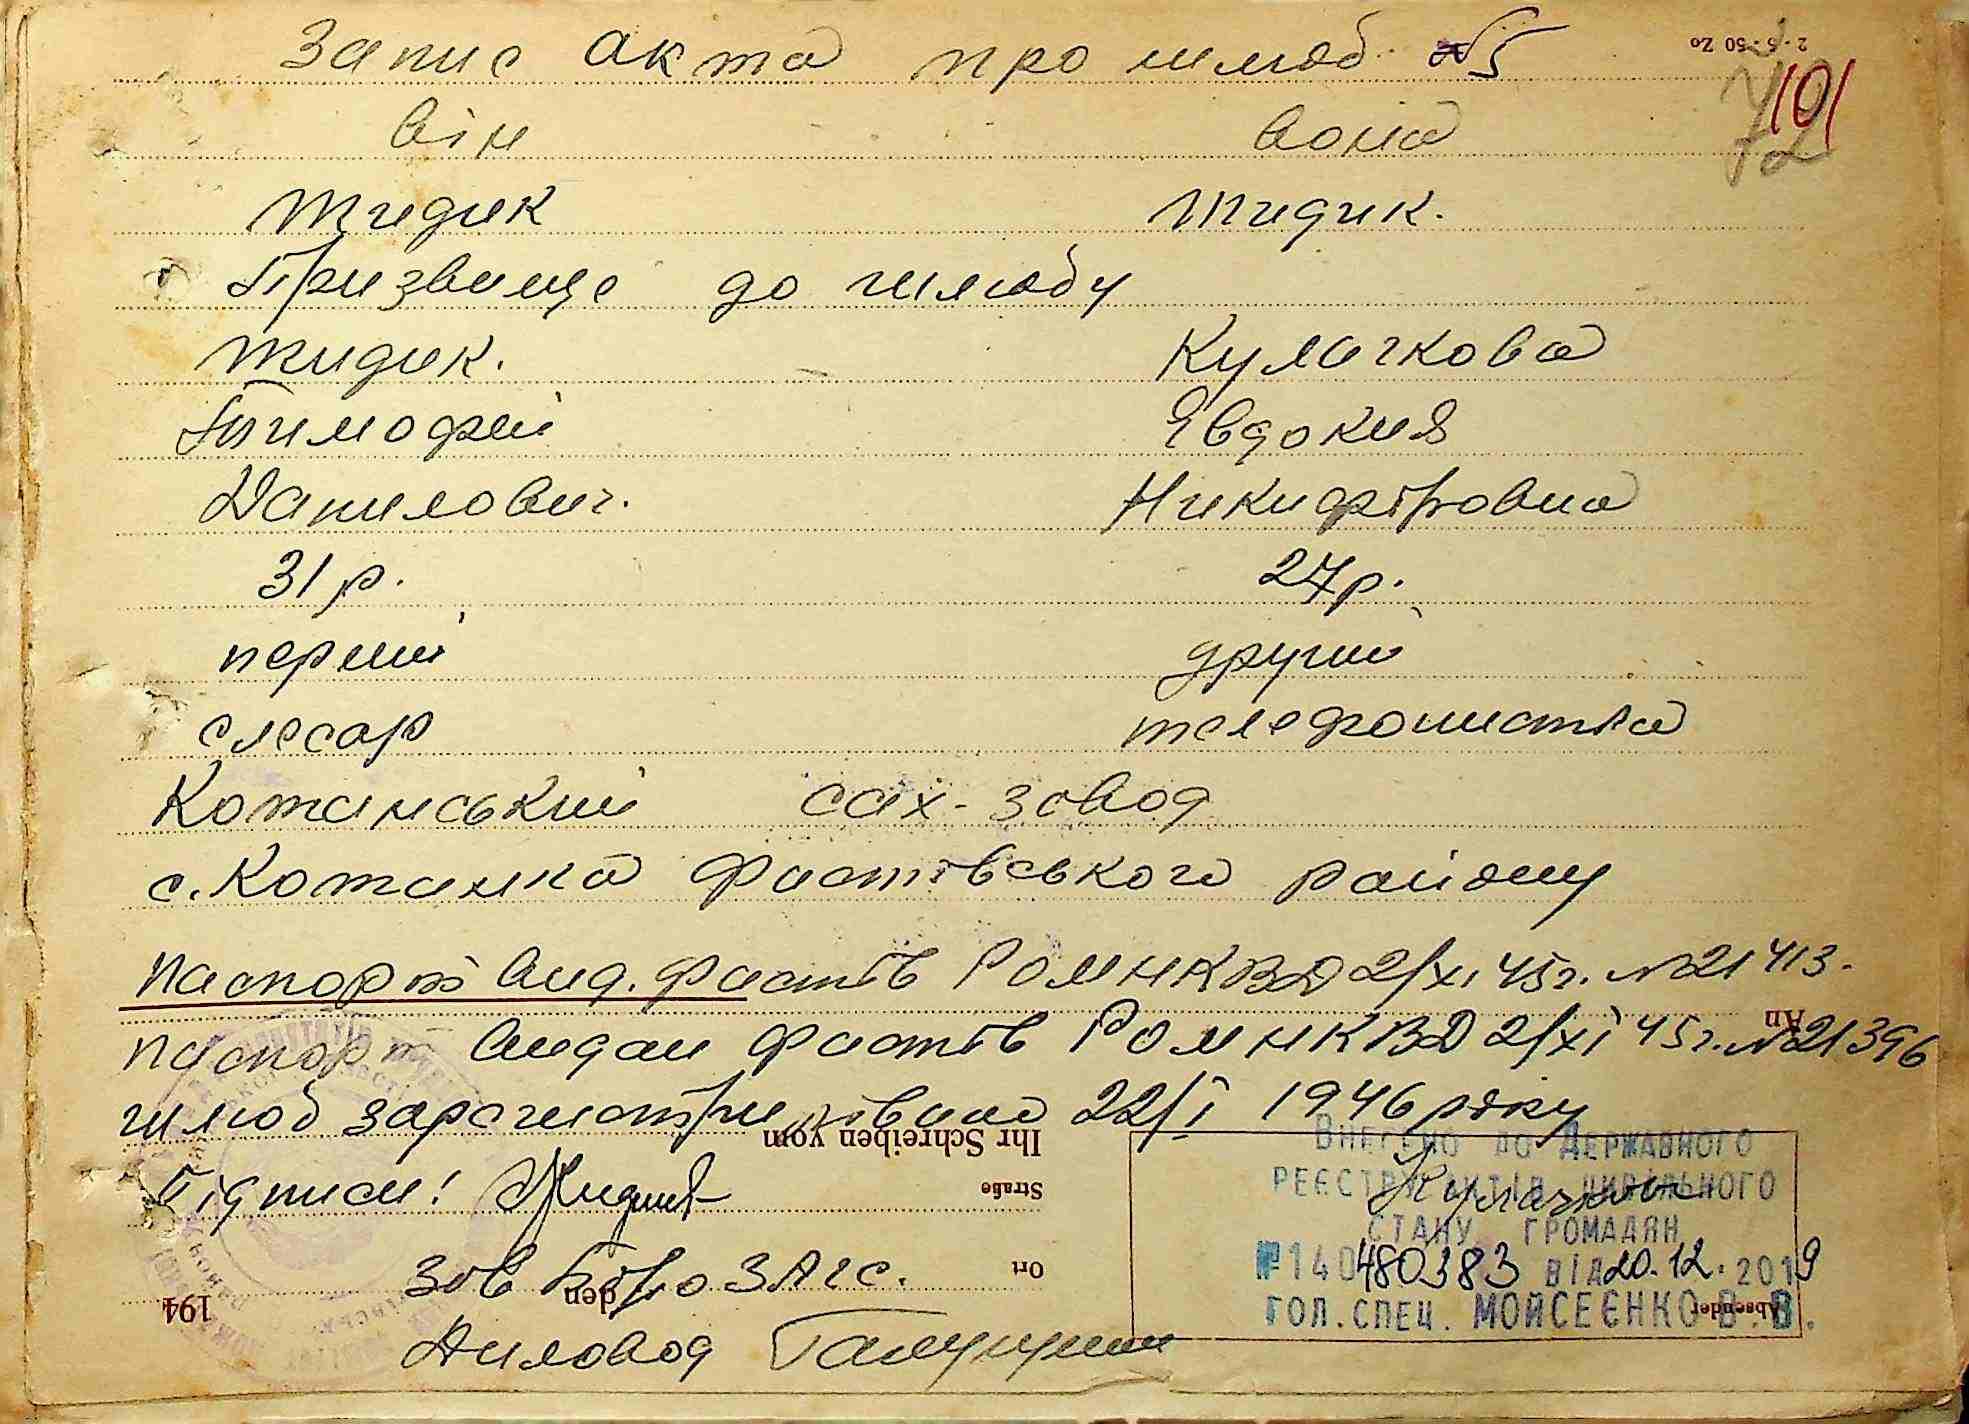 Запис акта про шлюб №5
2-5-50 Zo
101
72
Він Вона
Жидик Жидик.
Призвище до шлюбу
Жидик. Кулачкова
Тимофей Явдокия
Данилович. Никифоровна
31 р. 27 р.
перший другий
слесар телефонистка
Кожанський сах-завод
с. Кожанка Фастівського району
Паспорт вид. Фастів РОМ НКВД 2/XI 45 г. №21413.
An
паспорт видан Фастів РОМ НКВД 2/XI 45 г. №21396
шлюб зарегистрировано 22/I 1946 року
Ihr Schreiben vom
Підписи: Жидик Кулачкова
Straße
Внесено до Державного
реєстру актів цивільного
стану громадян
№140480383 від 20.12.2019
гол.спец. Мойсеєнко В.В.
Ort
Зав бюро ЗАГС.
194 den
Absender
Диловод